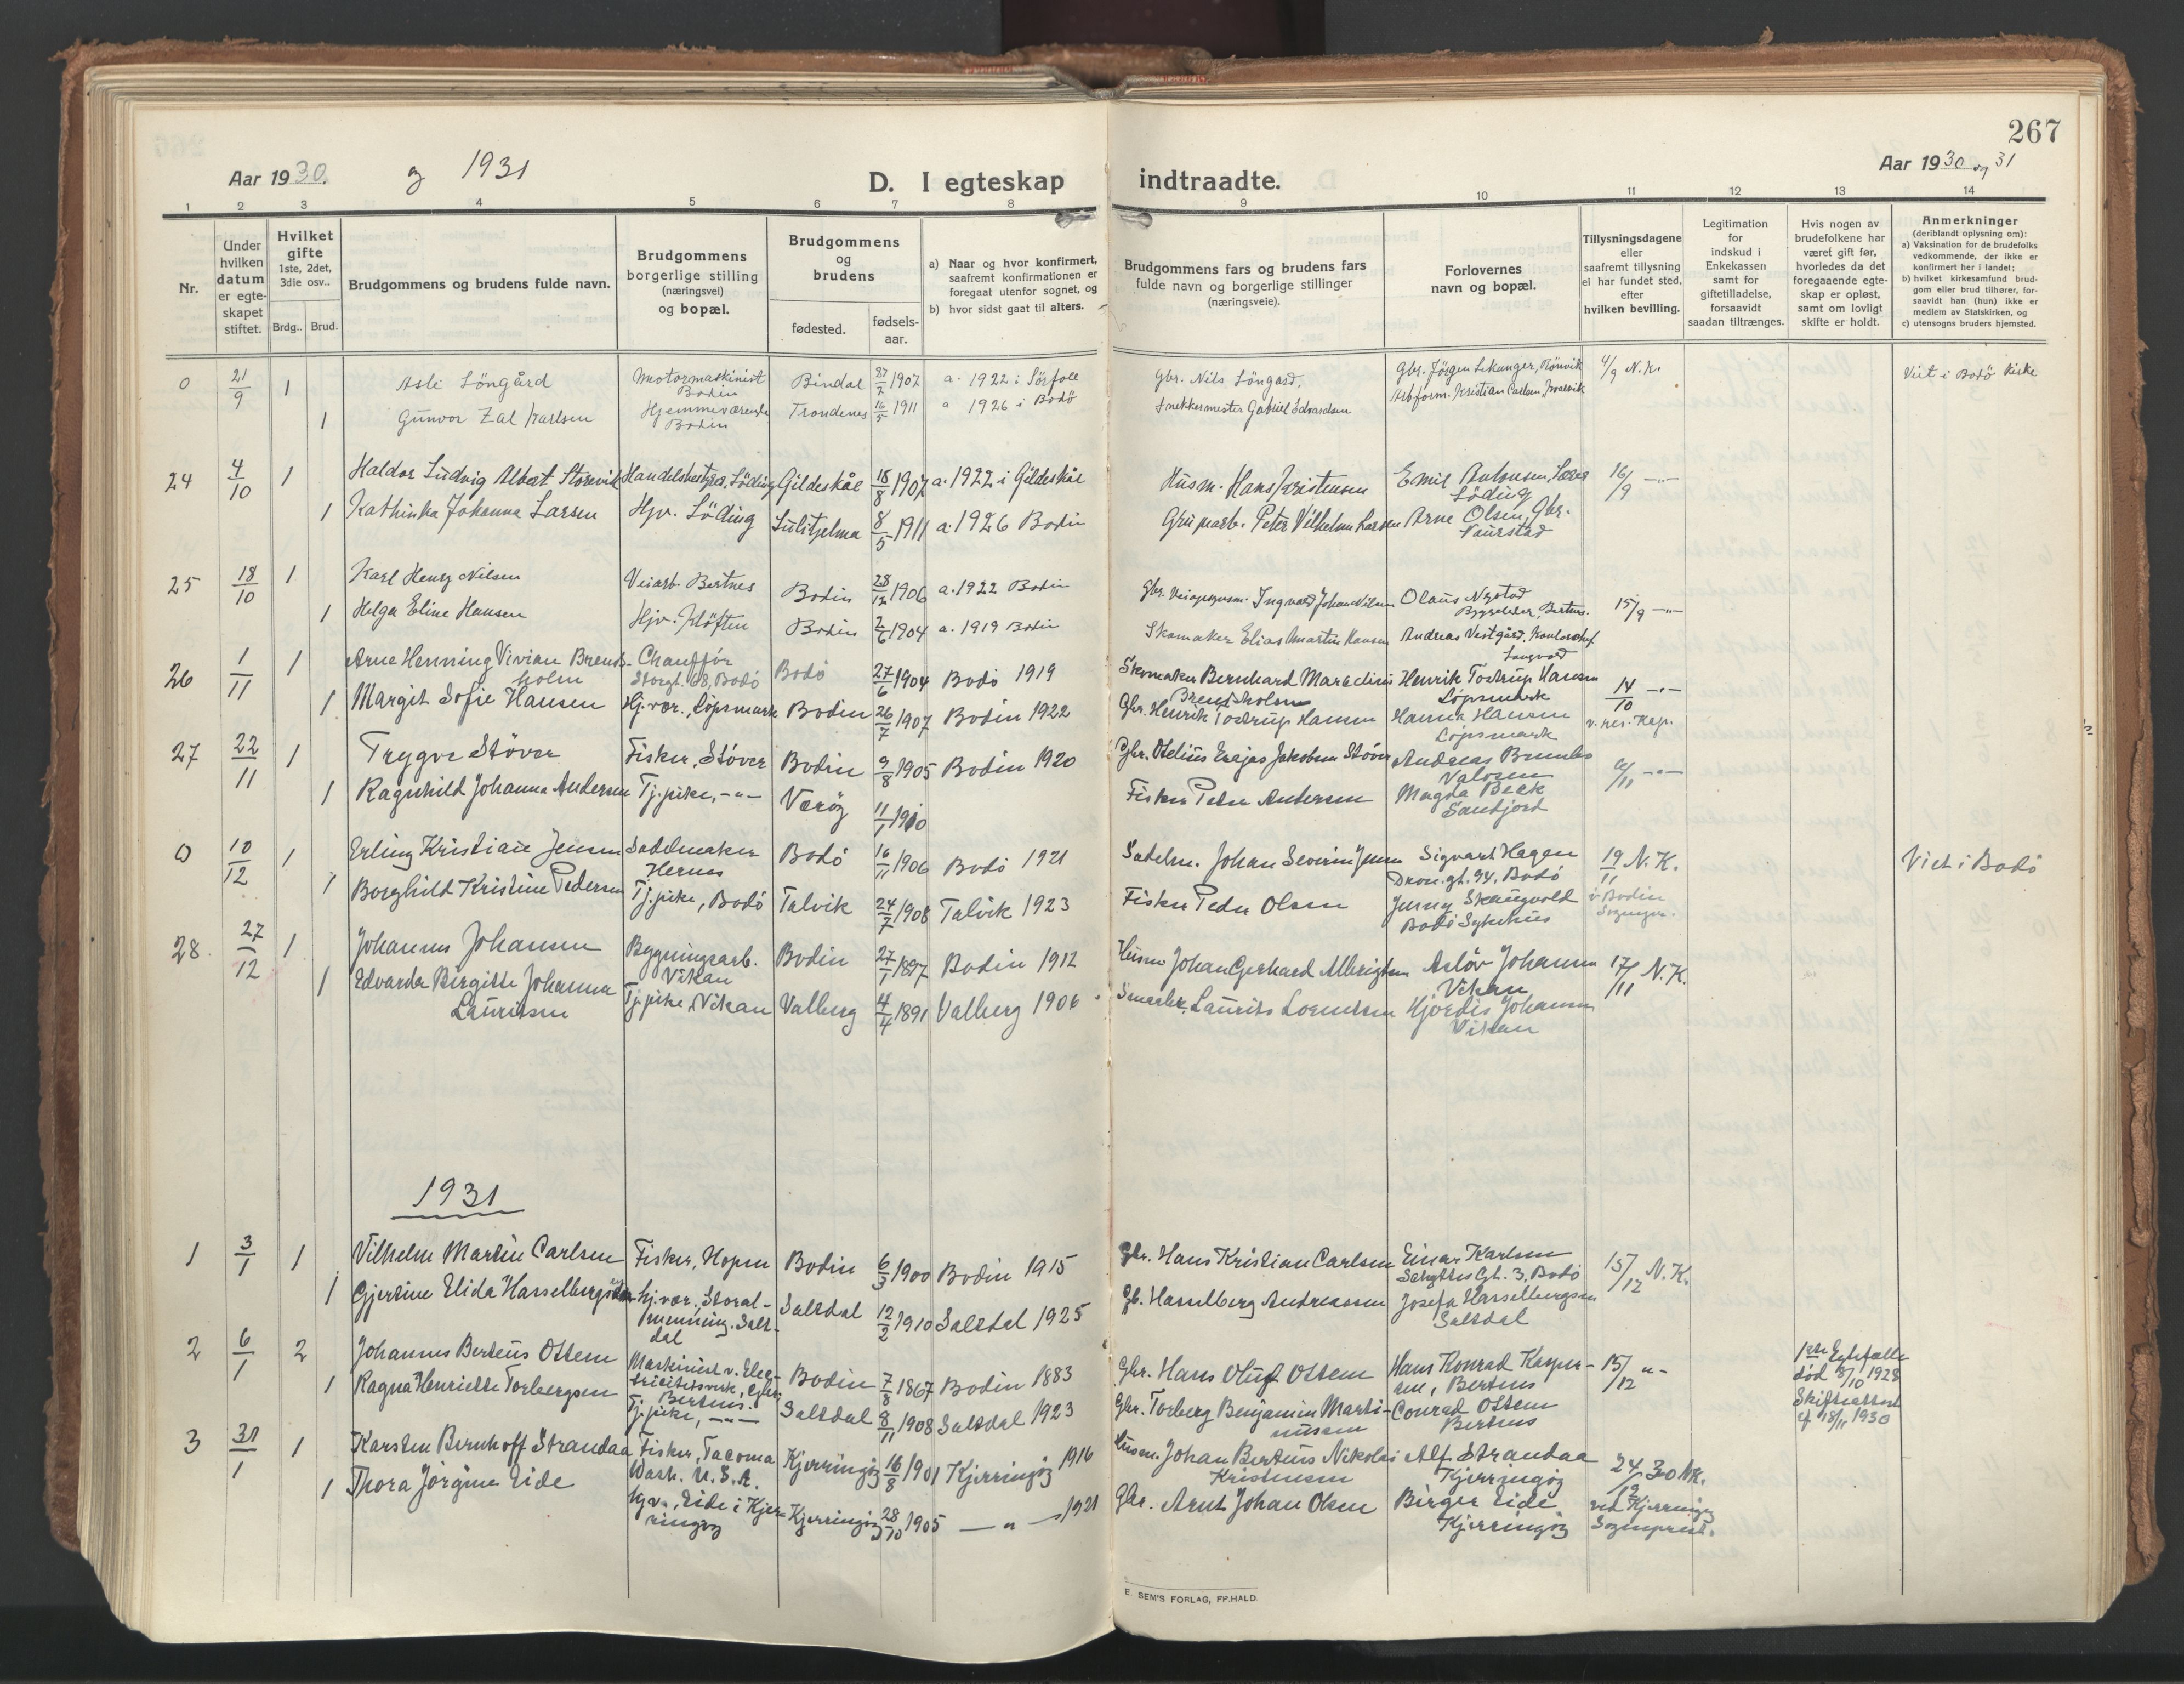 267
Aar 1930. og 1931
Aar 1930 og 31
D. I egteskap indtraadte.
1 2 3 4 5 6 7 8 9 10 11 12 13 14
Nr.
Under hvilken datum er egteskapet stiftet.
Hvilket gifte 1ste, 2det, 3die osv..
Brdg.. Brud.
Brudgommens og brudens fulde navn.
Brudgommens borgerlige stilling (næringsvei) og bopæl.
Brudgommens og brudens
fødested.
fødselsaar.
a) Naar og hvor konfirmert, saafremt konfirmationen er foregaat utenfor sognet, og
b) hvor sidst gaat til alters.
Brudgommens fars og brudens fars fulde navn og borgerlige stillinger (næringsveie).
Forlovernes navn og bopæl.
Tillysningsdagene eller saafremt tillysning ei har fundet sted, efter hvilken bevilling.
Legitimation for indskud i Enkekassen samt for giftetilladelse, forsaavidt saadan tiltrænges.
Hvis nogen av brudefolkene har været gift før, hvorledes da det foregaaende egteskap er opløst, samt om lovligt skifte er holdt.
Anmerkninger (deriblandt oplysning om):
a) Vaksination for de brudefolks vedkommende, der ikke er konfirmert her i landet;
b) hvilket kirkesamfund brudgom eller brud tilhører, forsaavidt han (hun) ikke er medlem av Statskirken, og
c) utensogns bruders hjemsted.
0 21/9 1 Asle Søngård Motormaskinist Bodin Bindal 27/7 1907 a. 1922 i Sørfold Gbr. Nils Søngård, Gbr. Jørgen Sekanger, Rønvik 4/9 N.K. Viet i Bodø kirke
1 Gunvor Zal Karlsen Hjemmeværende Bodin Trondenes 16/5 1911 a 1926 i Bodø Snekkermester Gabriel Edvardsen Arbform. Kristian Carlsen
24 4/10 1 Haldor Ludvig Albert Storvik Handelsbestyrer, Løding Gildeskål 18/8 1907 a. 1922 i Gildeskål Husm. Hans Kristensen Emil Antonsen, Lærer Løding 16/9 -"-
1 Kathinka Johanna Larsen Hjv. Løding Sulitjelma 8/5 1911 a. 1926 Bodin Grubearb. Peter Vilhelm Larsen Arne Olsen, Gbr. Naurstad
25 18/10 1 Karl Henry Nilsen Veiarb. Bertnes Bodin 28/12 1906 a. 1922 Bodin Gbr. Ingvald Johan Nilsen Olaus Nystad Byggeleder, Bertnes. 15/9 -"-
1 Helga Eline Hansen Hjv. Kløften Bodin 2/6 1904 a. 1919 Bodin Skomaker Elias Martin Hansen Andreas Vestgård, Kontorchef
26 1/11 1 Arne Henning Vivian Brendsholm Chauffør Storgt. 68, Bodø Bodø 27/6 1904 Bodø 1919 Skomaker Bernhard Maradius Brendsholm Henrik Tostrup Hansen Løpsmark 14/10 -"-
1 Margit Sofie Hansen Hj.vær., Løpsmark Bodin 26/7 1907 Bodin 1922 Gbr. Henrik Tostrup Hansen Hanna Hansen Løpsmark v. res. Kap.
27 22/11 1 Trygve Støver Fisker, Støver Bodin 9/8 1905 Bodin 1920 Gbr. Otelius Erajas Jakobsen Støver Andreas Valosen 6/11 -"-
1 Ragnhild Johanna Andersen Tj.pike, -"- Værøy 11/1 1910 Fisker Peder Andersen Magda Beck Sandjord
0 10/12 1 Erling Kristian Jensen Sadelmaker Hernes Bodø 16/11 1906 Bodø 1921 Sadelm. Johan Severin Jensen Sigvart Hagen Dron.gt. 94, Bodø 19/11 N.K. Viet i Bodø
1 Borghild Kristine Pedersen Tj.pike, Bodø Talvik 24/7 1908 Talvik 1923 Fisker Peder Olsen Jenny Skaugvold Bodø Sykehus i Bodin Sognepr.
28 27/12 1 Johannes Johansen Bygningsarb. Vikan Bodin 27/1 1897 Bodin 1912 Husm Johan Gerhard Albrigtsen Asløv Johansen Vikan 17/11 N.K.
1 Edvarda Birgitte Johanna Lauritsen Tj.pike, Vikan Valberg 4/4 1891 Valberg 1906 Smaabr. Laurits Lorentsen Hjørdis Johansen Vikan
1931
1 3/1 1 Vilhelm Martin Carlsen Fisker, Hopen Bodin 6/3 1900 Bodin 1915 Gbr. Hans Kristian Carlsen Einar Karlsen Schyttes Gt. 3, Bodø 15/12 N.K.
1 Gjertine Elida Hasselbergsen hj.vær. Storalmenning. Saltdal Saltdal 12/2 1910 Saltdal 1925 Gb. Hasselberg Andreassen Josefa Hasselbergsen Saltdal
2 6/1 2 Johannes Berteus Ottem Maskinist v. Electricitetsverk, Gbr. Bertnes. Bodin 7/8 1867 Bodin 1883 Gbr. Hans Oluf Ottem Hans Konrad Kaspersen, Bertnes 15/12 -"- 1ste Egtefælle død 8/10 1928 Skifteattest af 18/11 1930
1 Ragna Henriette Torbergsen Tj.pike, -"- Saltdal 8/11 1908 Saltdal 1923 Gbr. Torberg Benjamin Martinussen Conrad Ottem Bertnes
3 31/1 1 Karsten Bernhoff Strandaa Fisker, Tacoma Wash. U.S.A. Kjerringøy 16/8 1901 Kjerringøy 1916 Husm. Johan Bertius Nikolai Kristensen Alf Strandaa Kjerringøy 24/12 30 NK.
1 Thora Jørgine Eide hjv., Eide i Kjerringøy Kjerringøy 28/10 1905 -"- 1921 Gbr. Arnt Johan Olsen Birger Eide Kjerringøy ved Kjerringøy Sogneprest.
E. SEM'S FORLAG, FR.HALD